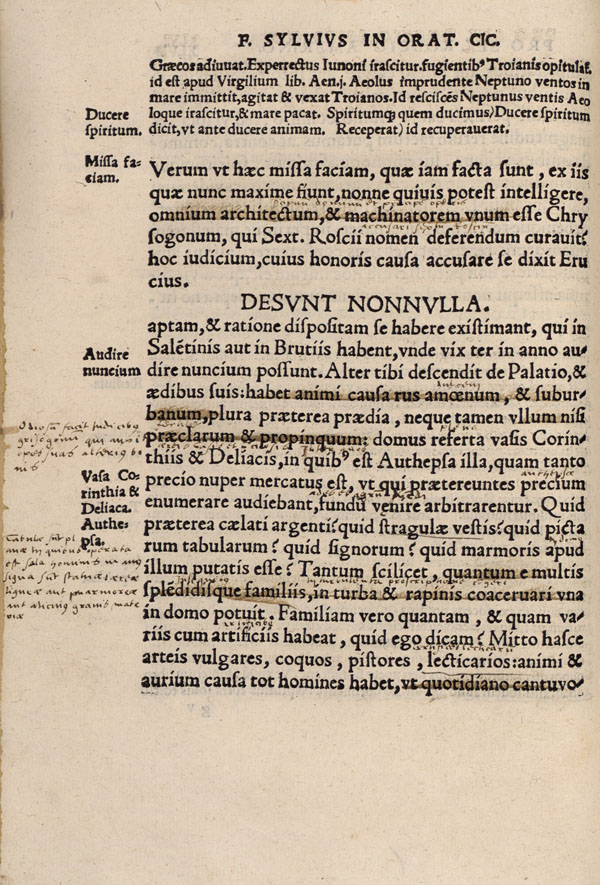 F. SYLVIVS IN ORAT. CIC.
Græcos adiuuat. Experrectus Iunoni irascitur. fugientibꝰ Troianis opitulat̃.
id est apud Virgilium lib. Aen.j. Aeolus imprudente Neptuno ventos in
mare immittit, agitat & vexat Troianos. Id resciscẽs Neptunus ventis Aeo
loque irascitur, & mare pacat. Spiritumqꝫ quem ducimus) Ducere spiritum
dicit, vt ante ducere animam. Receperat) id recuperauerat.
Ducere
spiritum.
Missa fa-
ciam.
Verum vt hæc missa faciam, quæ iam facta sunt, ex iis
quæ nunc maxime fiunt, nonne quiuis potest intelligere,
omnium architectum, & machinatorem vnum esse Chry
sogonum, qui Sext. Roscii nomen deferendum curauit?
hoc iudicium, cuius honoris causa accusare se dixit Eru
cius.
DESVNT NONNVLLA.
aptam, & ratione dispositam se habere existimant, qui in
Salẽtinis aut in Brutiis habent, vnde vix ter in anno au-
dire nuncium possunt. Alter tibi descendit de Palatio, &
ædibus suis: habet animi causa rus amœnum, & subur-
banum, plura præterea prædia, neque tamen vllum nisi
præclarum & propinquum: domus referta vasis Corin-
thiis & Deliacis, in quibꝰ est Authepsa illa, quam tanto
precio nuper mercatus est, vt qui prætereuntes precium
enumerare audiebant, fundũ venire arbitrarentur. Quid
præterea cælati argenti? quid stragulæ vestis? quid picta
rum tabularum? quid signorum? quid marmoris apud
illum putatis esse? Tantum scilicet, quantum e multis
splẽdidisque familiis, in turba & rapinis coaceruari vna
in domo potuit. Familiam vero quantam, & quam va-
riis cum artificiis habeat, quid ego dicam? Mitto hasce
arteis vulgares, coquos, pistores, lecticarios: animi &
aurium causa tot homines habet, vt quotidiano cantu vo-
Audire
nuncium
Vasa Co-
rinthia &
Deliaca.
Authe-
psa.